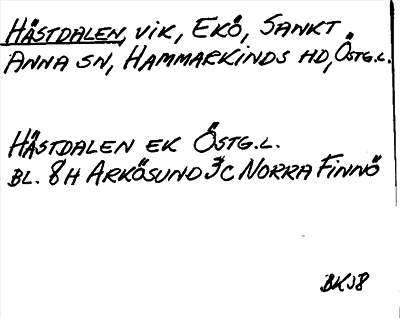 HÄSTDALEN, VIK, EKÖ, SANKT
ANNA SN, HAMMARKINDS HD, ÖSTG.L.
HÄSTDALEN EK ÖSTG.L.
BL. 8H ARKÖSUND 3C NORRA FINNÖ